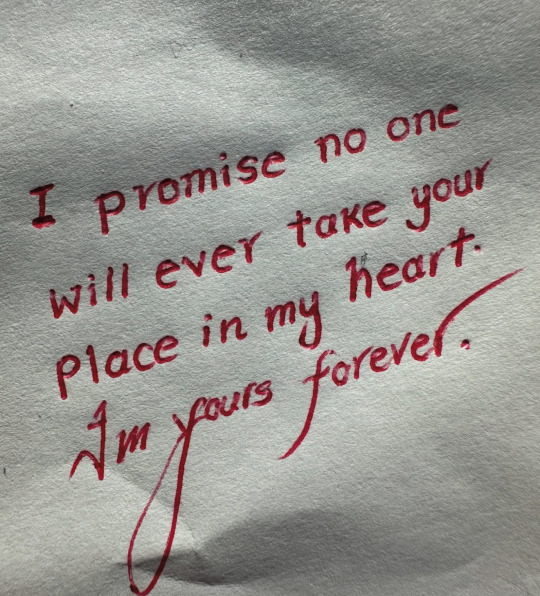 I promise no one
will ever take your
place in my heart.
I'm yours forever.